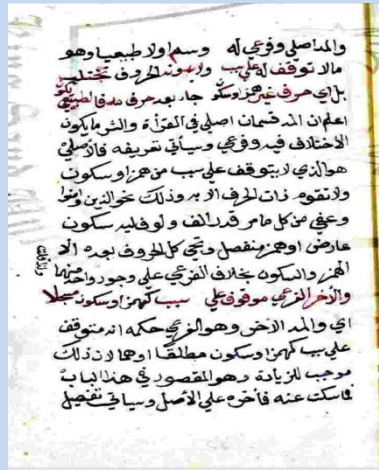 والمد اصلي وفرعي له وسم اولا طبيعيا وهو
مالا توقف له على سبب ولا بدونه الحروف تجتلب
بل اي حرف غير همز او سكون جا بعد حرف مد فالطبيعي يكون
اعلم ان المد قسمان اصلي في القرأة والشر ما يكون
الاختلاف فيه وفرعي وسياتي تعريفه فالاصلي
هو الذي لا يتوقف على سبب من همز او سكون
ولا تقوم ذات الحرف الا به وذلك نحو الذين
وعفي من كل ما مر قدر الف ولو فليه سكون
عارض او همز منفصل وتجي كل الحروف بعده الا
الهمز والسكون بخلاف الفرعي على وجود واحد منهما
والأخر الفرعي موقوف على سبب كهمز او سكون مسجلا
اي والمد الاخر وهو الفرعي حكمه انه متوقف
على سبب كهمز او سكون مطلقا اوهما لان ذلك
موجب للزيادة وهو المقصود في هذا الباب
فاسكت عنه فأخره على الأصل وسياتي تفصيل